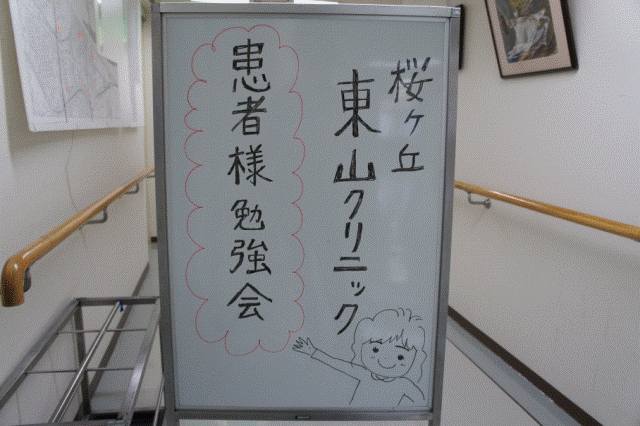 桜ヶ丘
東山クリニック
患者様勉強会